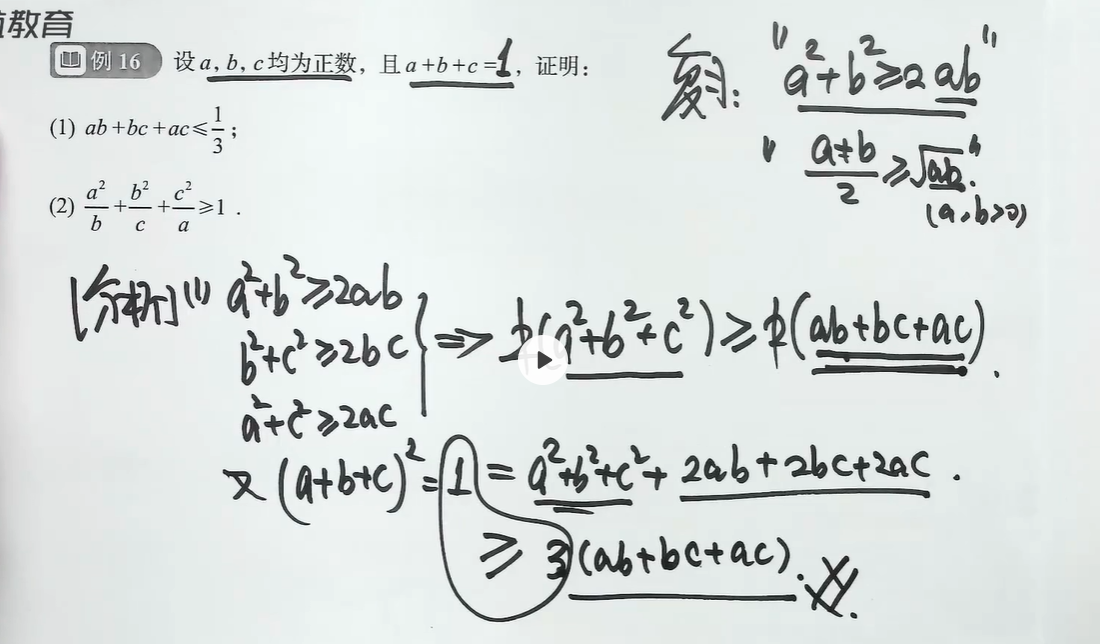 教育
例 16 设 a, b, c 均为正数，且 a+b+c=1，证明：
(1) ab+bc+ac≤1/3；
(2) a²/b+b²/c+c²/a≥1．
复习: "a²+b²≥2ab"
" (a+b)/2≥√ab."
(a,b>0)
[分析] (1) a²+b²≥2ab
b²+c²≥2bc
a²+c²≥2ac
} ⇒ 2(a²+b²+c²)≥2(ab+bc+ac).
又 (a+b+c)²=1=a²+b²+c²+2ab+2bc+2ac.
≥3(ab+bc+ac).